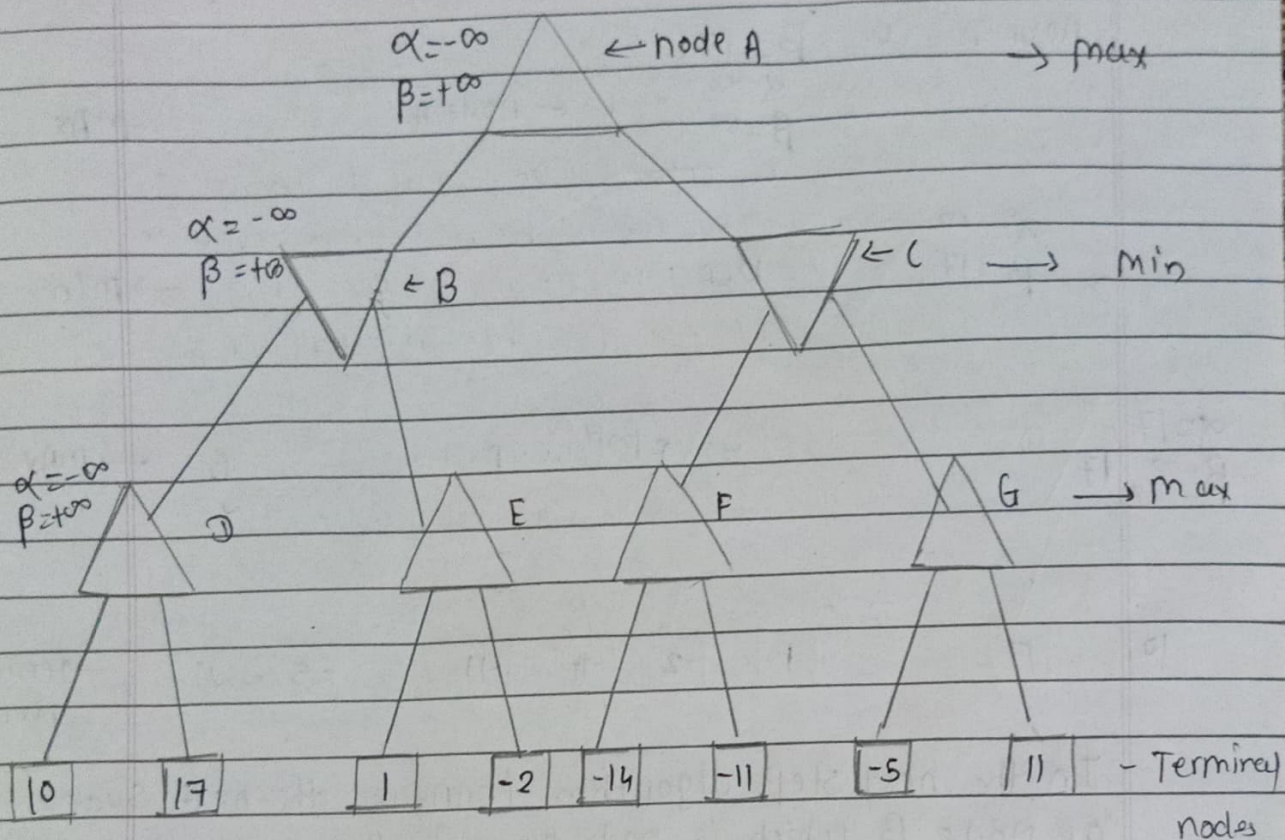 α=-∞ ← node A → max
β=+∞
α = -∞
β=+∞ ← B ← C → Min
α=-∞
β=+∞ D E F G → Max
10 17 1 -2 -14 -11 -5 11 - Terminal
nodes